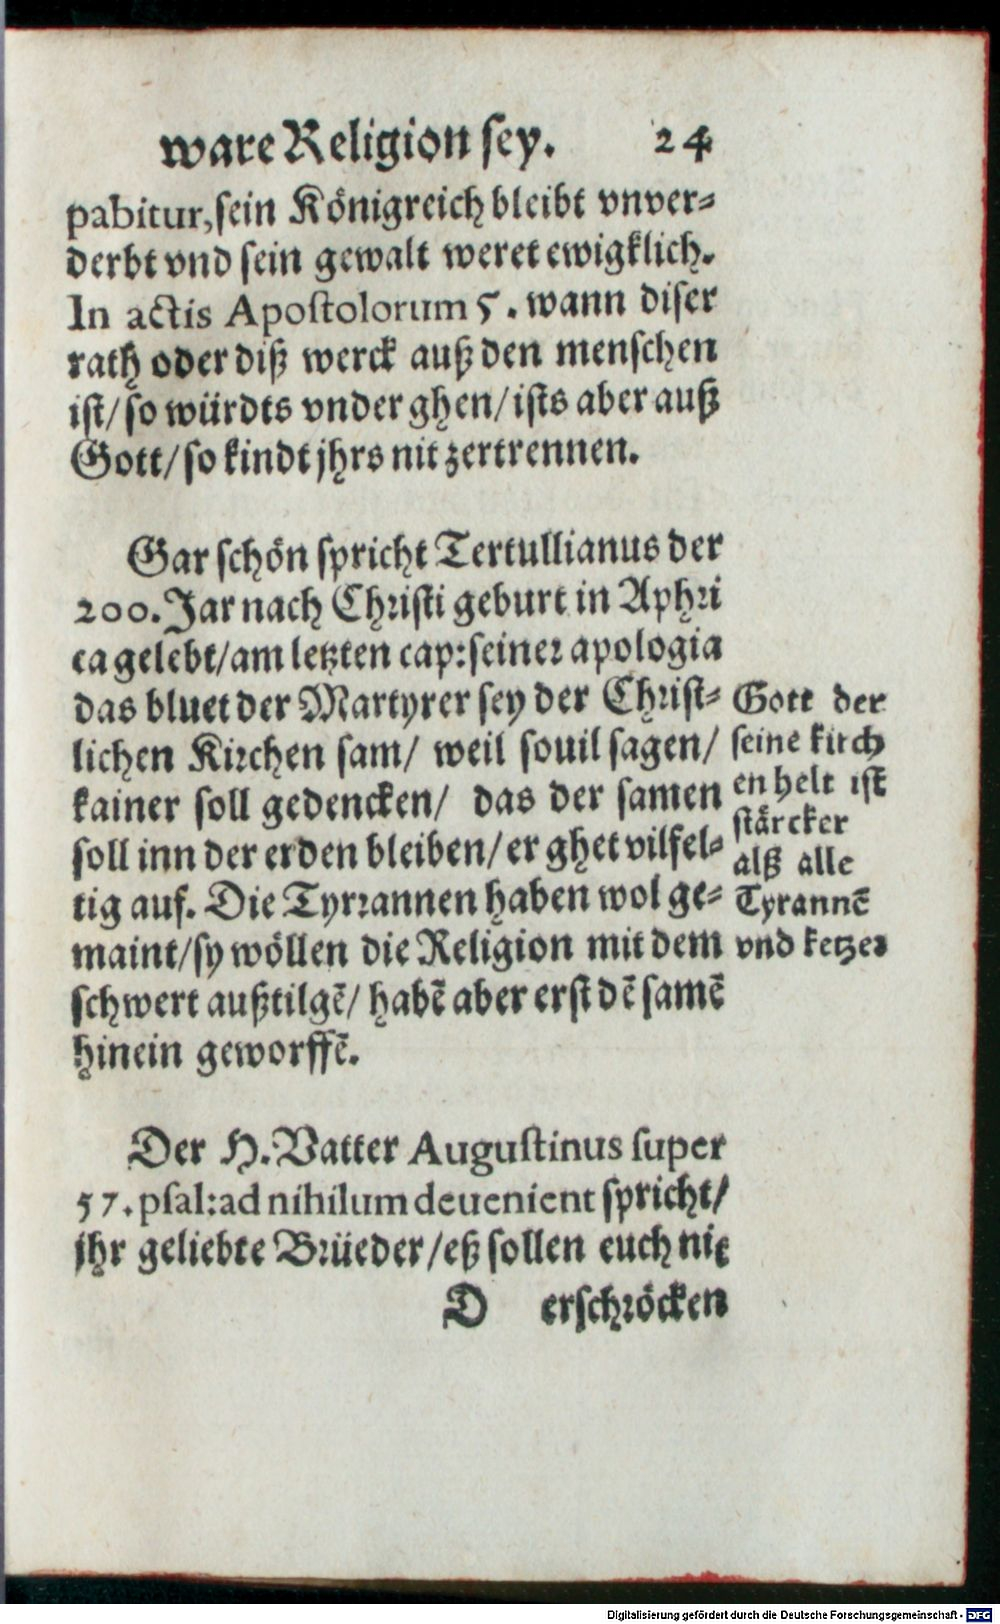 ware Religion sey. 24
pabitur, sein Königreich bleibt vnver-
derbt vnd sein gewalt weret ewigklich.
In actis Apostolorum 5. wann diser
rath oder diß werck auß den menschen
ist/ so würdts vnder ghen/ ists aber auß
Gott/ so kindt jhrs nit zertrennen.
Gar schön spricht Tertullianus der
200. Jar nach Christi geburt in Aphri
ca gelebt/ am letzten cap: seiner apologia
das bluet der Martyrer sey der Christ-
lichen Kirchen sam/ weil souil sagen/
kainer soll gedencken/ das der samen
soll inn der erden bleiben/ er ghet vilfel-
tig auf. Die Tyrrannen haben wol ge-
maint/ sy wöllen die Religion mit dem
schwert außtilgē/ habē aber erst dē samē
hinein geworffē.
Gott der
seine kirch
en helt ist
stärcker
alß alle
Tyrannē
vnd ketzer
Der H. Vatter Augustinus super
57. psal: ad nihilum deuenient spricht/
jhr geliebte Brüeder/ eß sollen euch nit
D erschröcken
Digitalisierung gefördert durch die Deutsche Forschungsgemeinschaft - DFG